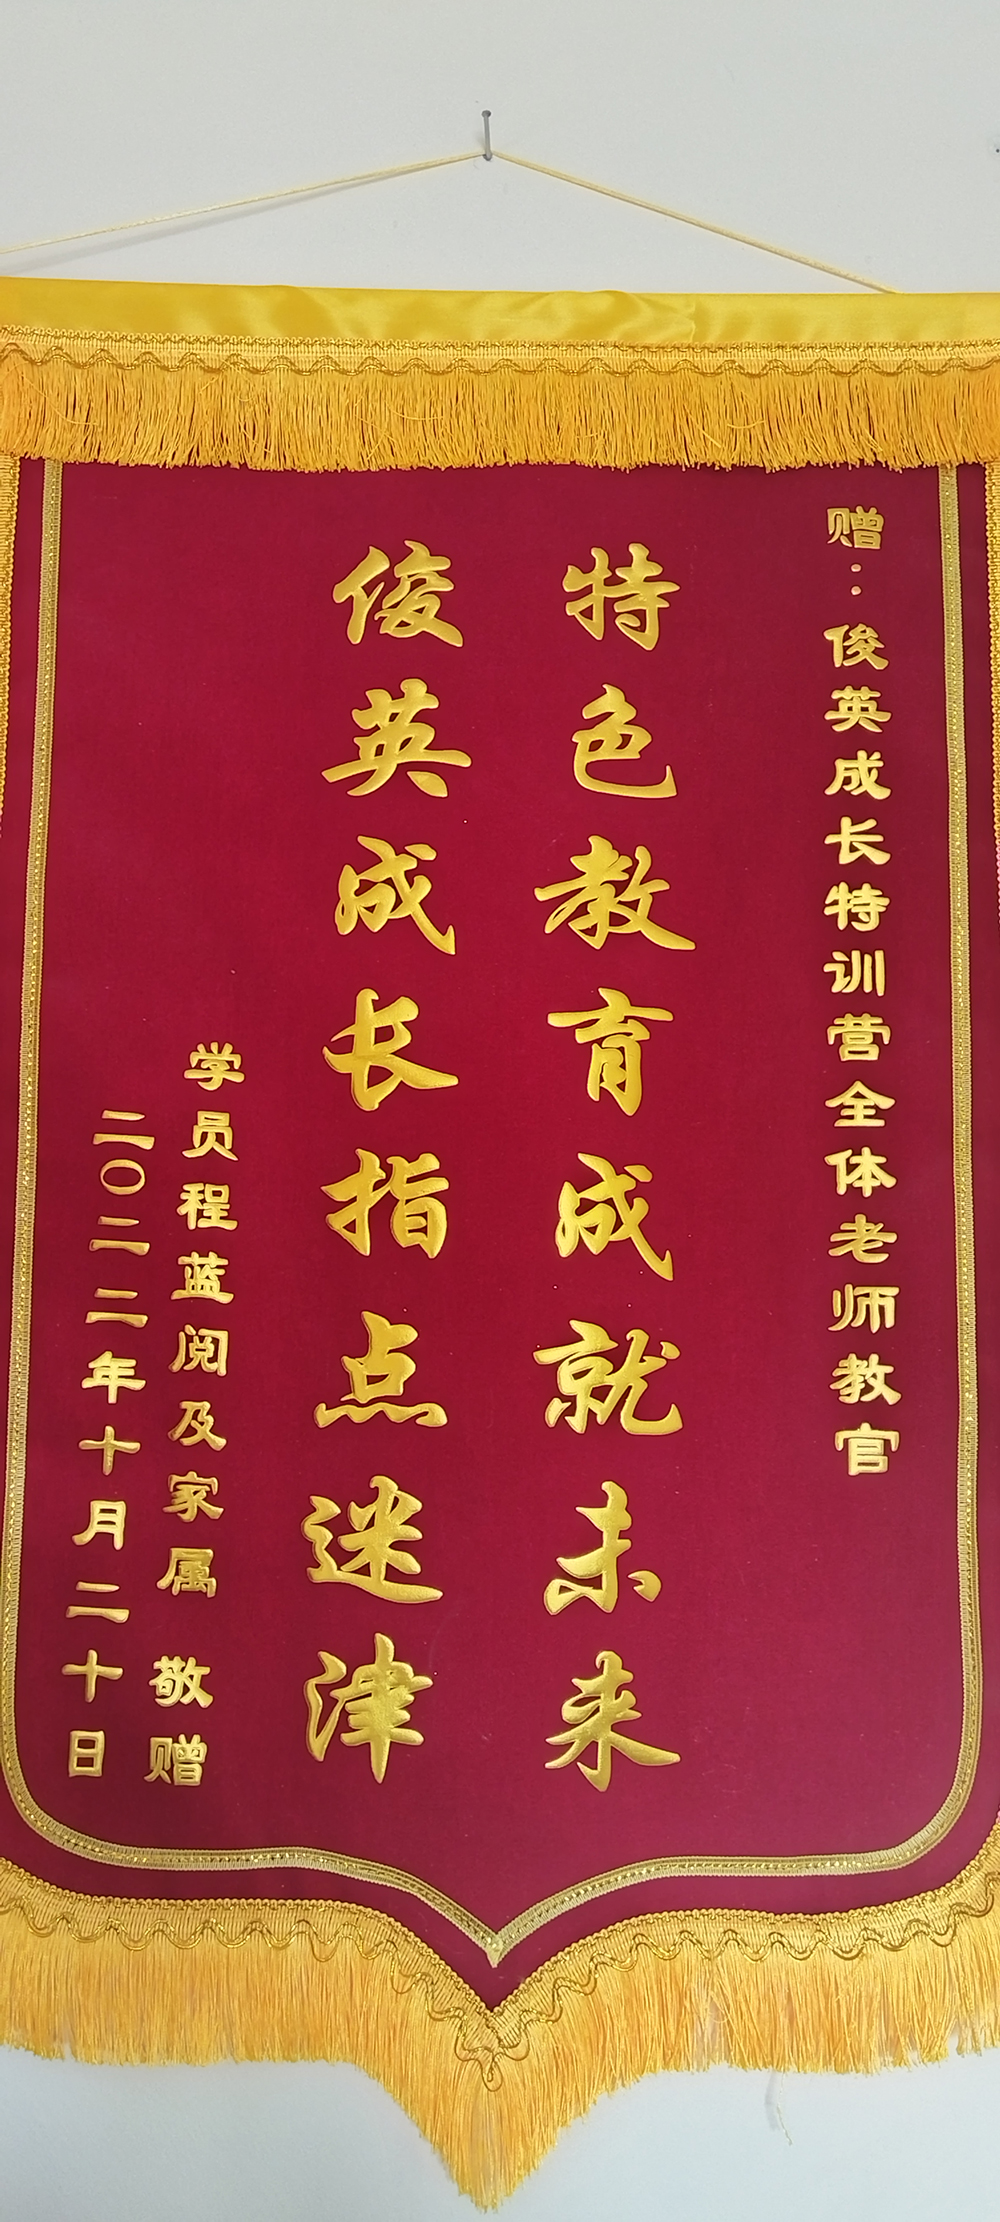 赠：俊英成长特训营全体老师教官
特色教育成就未来
俊英成长指点迷津
学员程蓝阅及家属 敬赠
二〇二二年十月二十日